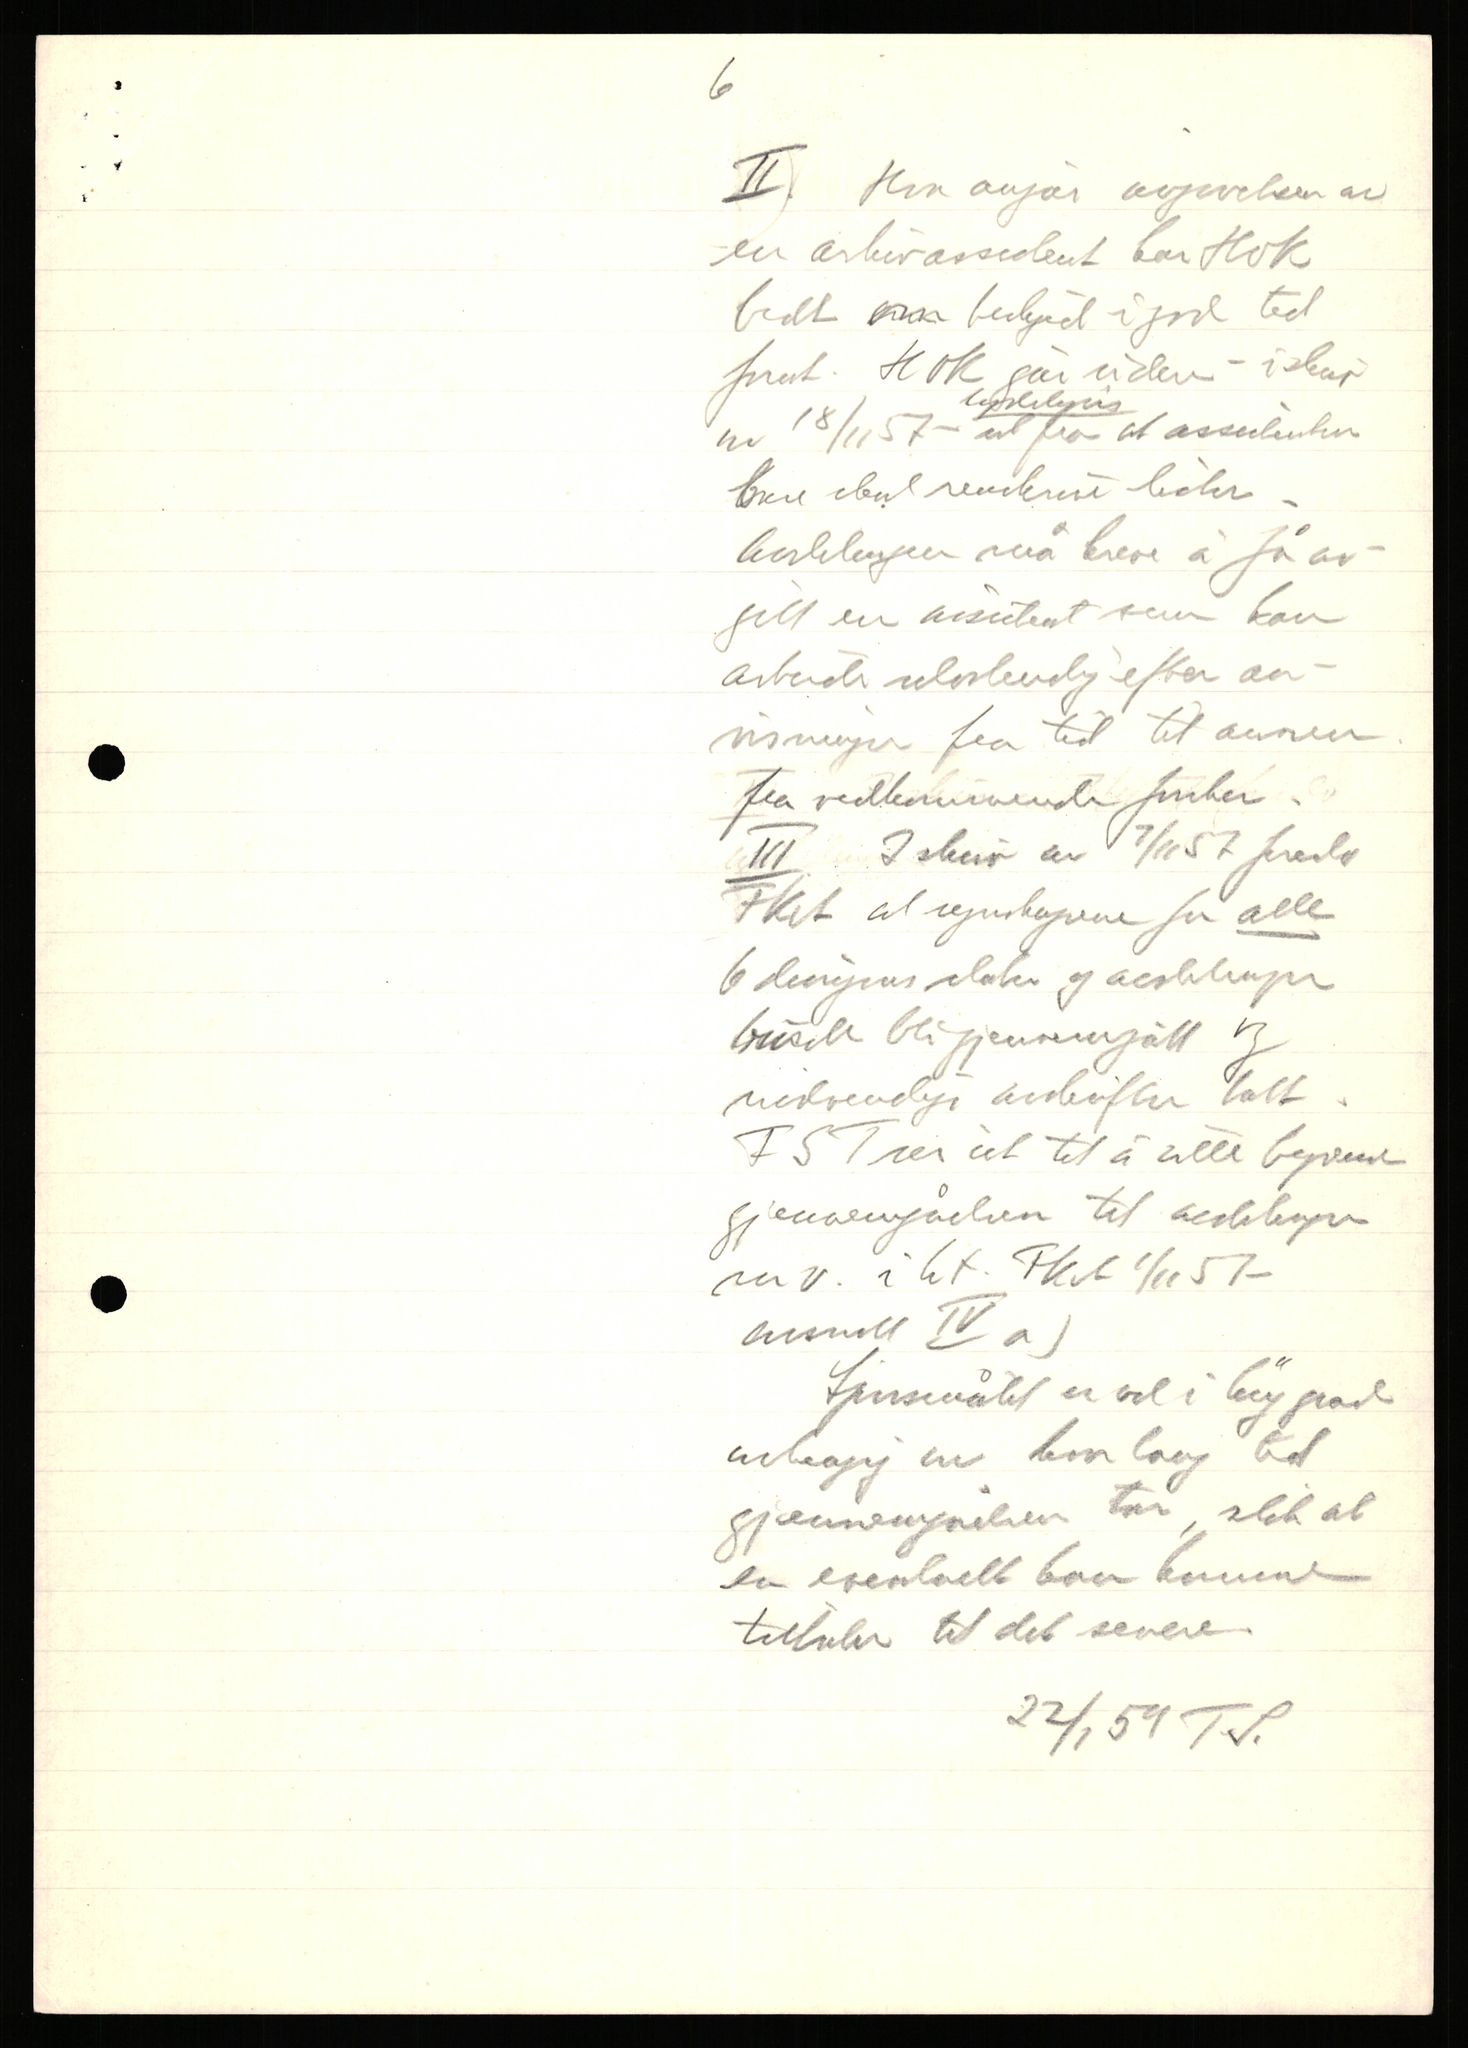 6
II). Hva angår avgivelsen av
en arkivassistent har HOK
bedt om beskjed i god tid
forut. HOK går videre - i skriv
av 18/11 57 - ut fra at assistenten
bare skal renskrive lister -
Avdelingen må kreve å få av-
gitt en assistent som kan
arbeide selvstendig efter an-
visninger fra tid til annen
fra vedkommende forsker.
III I skriv av 7/11 57 foreslo
FKst at regnskapene for alle
6 divisjons staber og avdelinger
burde bli gjennemgått og
nødvendige avskrifter tatt.
FST ser ut til å ville begrense
gjennemgåelsen til avdelinger
m v. i h.t. FKst 1/11 57
avsnitt IV a)
Spørsmålet er vel i høy grad
avhengig av hvor lang tid
gjennemgåelsen tar, slik at
en eventuelt kan komme
tilbake til det senere.
22/1 59 T.S.